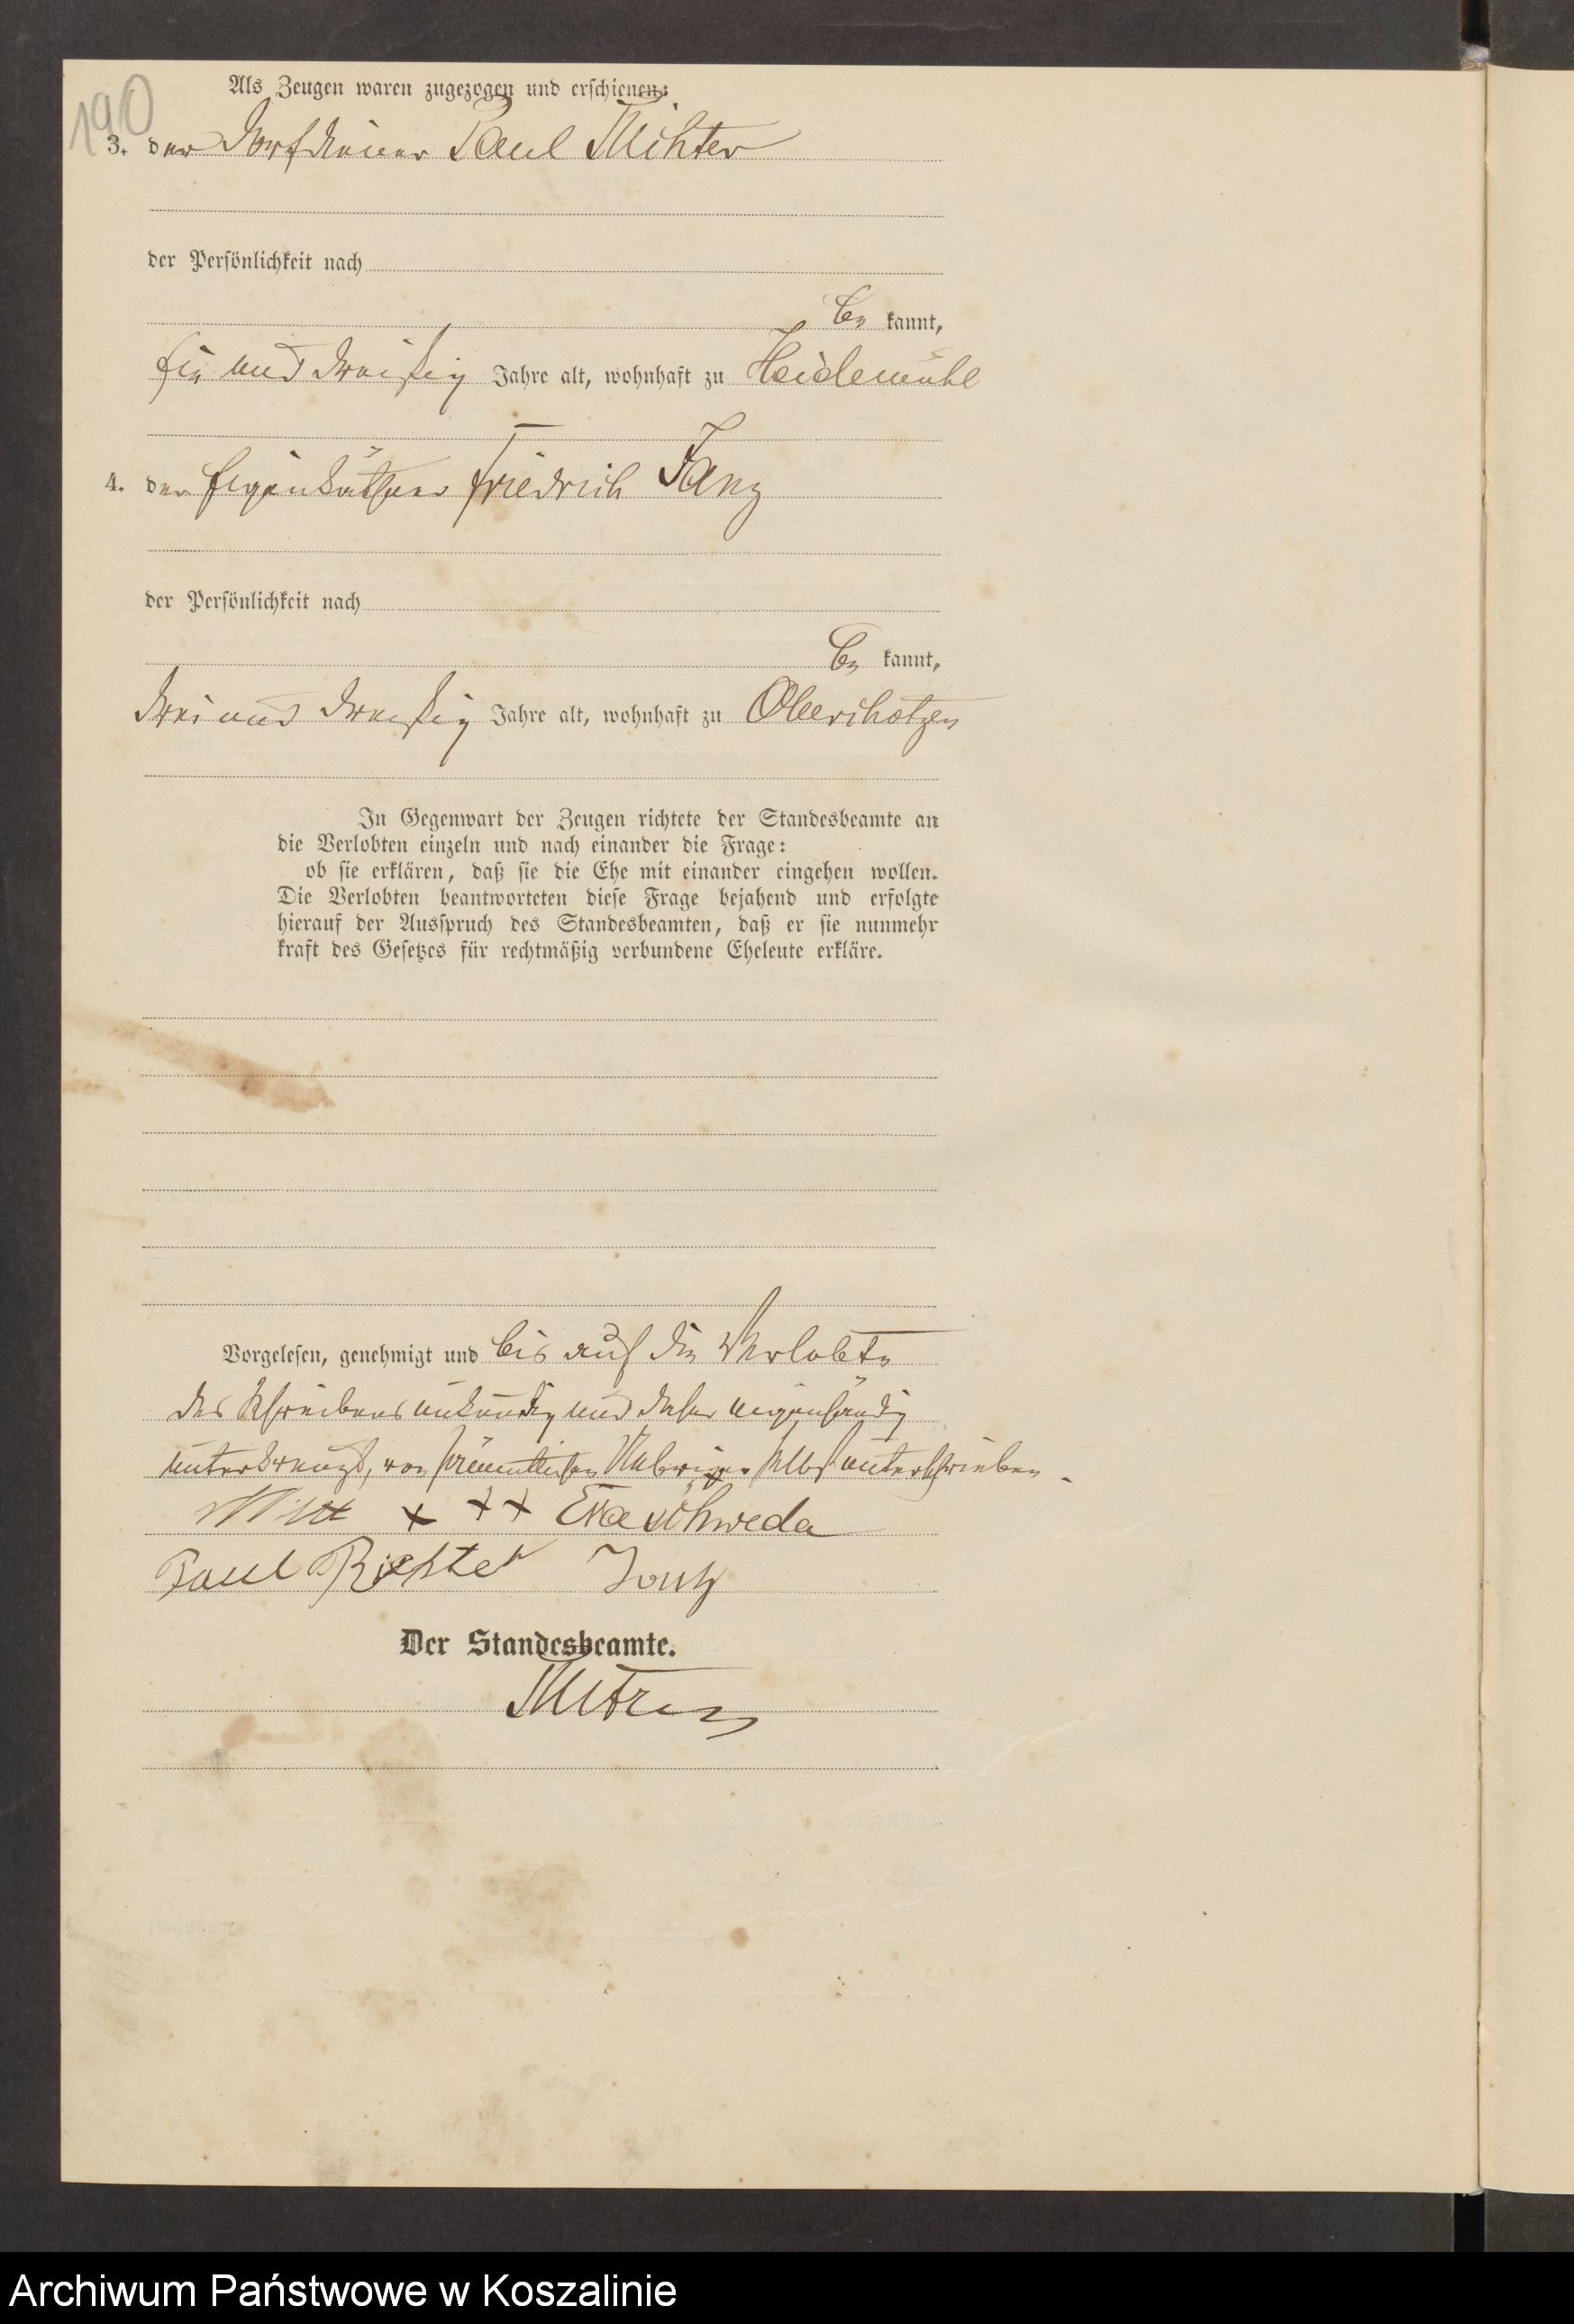 190
Als Zeugen waren zugezogen und erschienen:
3. der Dorfdiener Paul Richter
der Persönlichkeit nach
be kannt,
ein und dreißig Jahre alt, wohnhaft zu Heidemühl
4. der Eigenkäthner Friedrich Janz
der Persönlichkeit nach
be kannt,
drei und dreißig Jahre alt, wohnhaft zu Oberschotzen
In Gegenwart der Zeugen richtete der Standesbeamte an
die Verlobten einzeln und nach einander die Frage:
ob sie erklären, daß sie die Ehe mit einander eingehen wollen.
Die Verlobten beantworteten diese Frage bejahend und erfolgte
hierauf der Ausspruch des Standesbeamten, daß er sie nunmehr
kraft des Gesetzes für rechtmäßig verbundene Eheleute erkläre.
Vorgelesen, genehmigt und bis auf die Verlobte
des Schreibens unkundig und daher eigenhändig
unterkreuzt, von sämmtlichen Uebrigen selbst unterschrieben.
+ ++ Eva Schweda
Paul Richter
Der Standesbeamte.
Archiwum Państwowe w Koszalinie